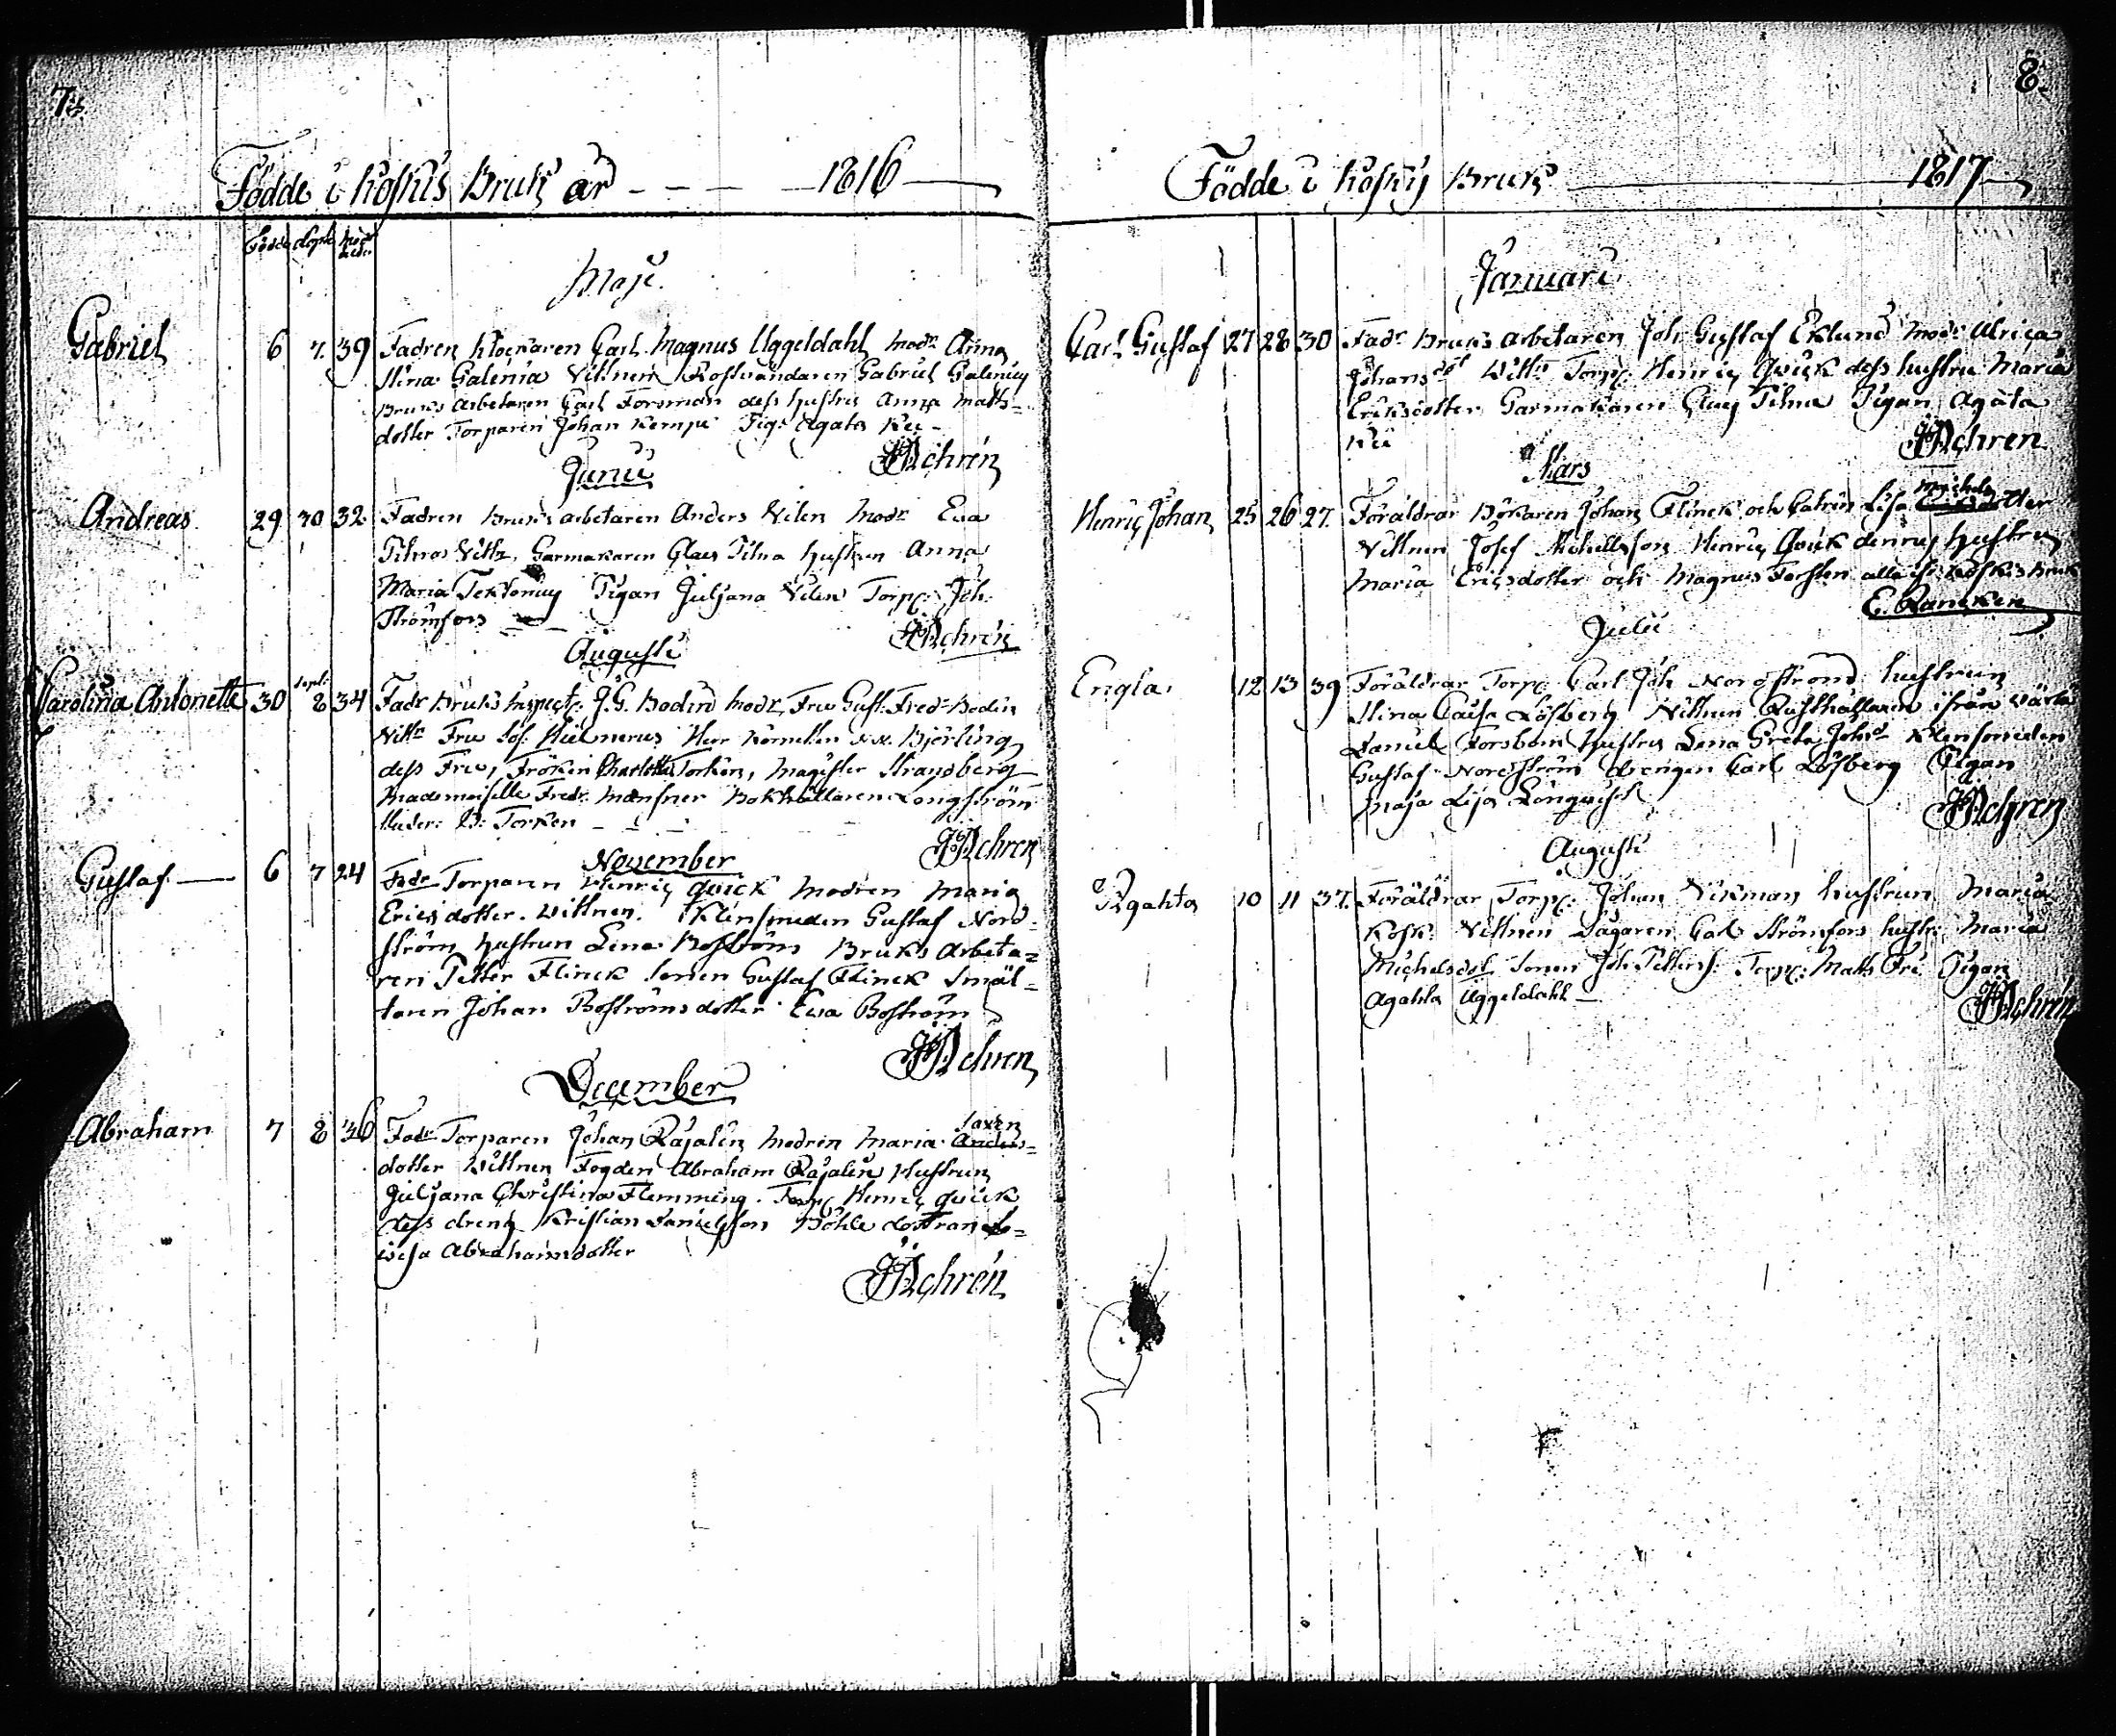 7.
Födde i Koskis Bruk år - - - - 1816
Födde döpte Modr ålder
Maji.
Gabriel 6 7. 39 Fadren Klockaren Carl Magnus Uggeldahl modr Anna
Stina Galenia Vittnen Rostvändaren Gabriel Galenius
Bruks arbetaren Carl Forsman dess hustru Anna Matts-
dotter Torparen Johan Kempi Pig. Agata
JAchrén
Junii
Andreas 29 30 32 Fadren Bruks arbetaren Anders Vilen Modr Eva
Tilna Vittn. Garmakaren Claes Tilna hustrun Anna
Maria Tektonius Pigan Juljana Vilen Torp. Joh.
Strömfors
JAchrén
Augusti
Carolina Antonette 30 Sept: 8 34 Fadr Bruks Inspect. J. G. Bodin modr Fru Gust. Fred. Bodin
Vittn Fru Sof. Herr N.N. Björling
dess Fru, Fröken Charlotta Torken, Magister Strandberg
Mademoiselle Fredr. Bokhållaren Longström
Studer: B: Torken - - -
JAchren
November
Gustaf 6 7 24 Fadr Torparen Henric Quick modren Maria
Ericsdotter. Vittnen. Klensmeden Gustaf Nord-
ström hustrun Lena Boström Bruks Arbeta=
ren Petter Flinck sonen Gustaf Flinck Smäl-
taren Johan Boströms dotter Eva Boström
JAchren
December
Abraham 7 8 36 Fadr Torparen Johan Rajalin modren Maria Saxen Anders-
dotter Vittnen Fogden Abraham Rajalin Hustrun
Juljana Christina Flemming. Torp. Henric Quick
dess dreng Kristian Danielsson Böhle dottran Lo-
visa Abrahamsdotter
JAchrén
8.
Födde i Koskis Bruk 1817
Januari
Carl Gustaf 27 28 30 Fadr Bruks arbetaren Joh Gustaf Eklund modr Ulrica
Johansdot Vittn Torp. Henric Quick dess hustru Maria
Ericsdotter Garmakaren Claes Tilna Pigan Agata
JAchren
Mars
Henric Johan 25 26 27. Föräldrar Johan Flinck och Catrin Lisa Michelsdotter
Vittnen Josef Michellsson Henric Quick dennes hustru
Maria Ericsdotter och Magnus Forsten alla if: Koskis Bruk
E. Rancken
Julii
Engla 12 13 39 Föräldrar Torp. Carl Joh Nordstrand hustrun
Stina Caisa Löfberg Vittnen Rusthållaren ifrån
Daniel Forsbom hustru Lena Greta Johsd Klensmeden
Gustaf Nordström drengen Carl Löfberg Pigan
Maja Lisa Löngqvist
JAchren
Augusti
Agahta 10 11 37. Föräldrar Torp. Johan Vikman hustrun Maria
Kosk. Vittnen Sågaren Carl Strömfors hustr. Maria
Michelsdot Sonen Joh Petterss. Torp: Matts Pigan
Agahta Uggeldahl
JAchrén